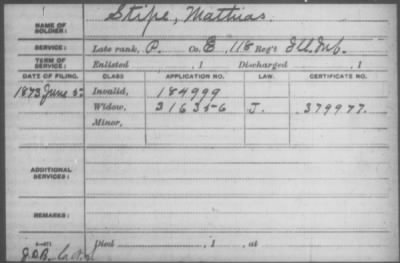 NAME OF SOLDIER: Stipe, Mathias
SERVICE: Late rank, P. Co. E, 118 Reg't Ill. Inf.
TERM OF SERVICE: Enlisted , 1 Discharged , 1
DATE OF FILING. CLASS. APPLICATION NO. LAW. CERTIFICATE NO.
1873 June 5 Invalid, 184999
Widow, 316356 J. 379977.
Minor,
ADDITIONAL SERVICES:
REMARKS:
Died , 1 , at